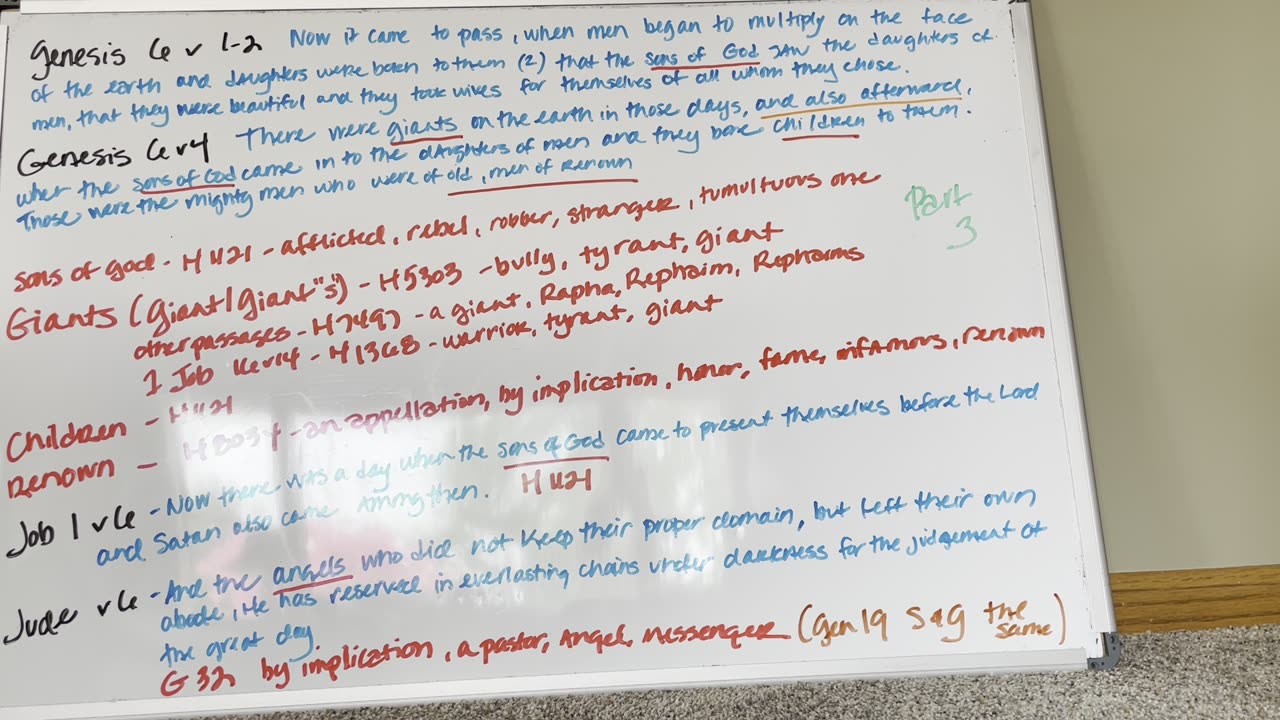 Genesis 6 v 1-2 Now it came to pass, when men began to multiply on the face
of the earth and daughters were born to them (2) that the sons of God saw the daughters of
men, that they were beautiful and they took wives for themselves of all whom they chose.
Genesis 6 v4 There were giants on the earth in those days, and also afterward,
when the sons of God came in to the daughters of men and they bore children to them.
Those were the mighty men who were of old, men of renown
Part
3
sons of god - H1121 - afflicted, rebel, robber, stranger, tumultuous one
Giants (giant/giant"s") - H5303 - bully, tyrant, giant
other passages - H7497 - a giant, Rapha, Rephaim, Rephaims
1 Job 16 v14 - H1368 - warrior, tyrant, giant
Children - H1121
Renown - H8034 - an appellation, by implication, honor, fame, infamous, renown
Job 1 v6 - Now there was a day when the sons of God came to present themselves before the Lord
and Satan also came among them. H1121
Jude v6 - And the angels who did not keep their proper domain, but left their own
abode, He has reserved in everlasting chains under darkness for the judgement of
the great day
G32 by implication, a pastor, Angel, messenger (Gen 19 S&G the same)